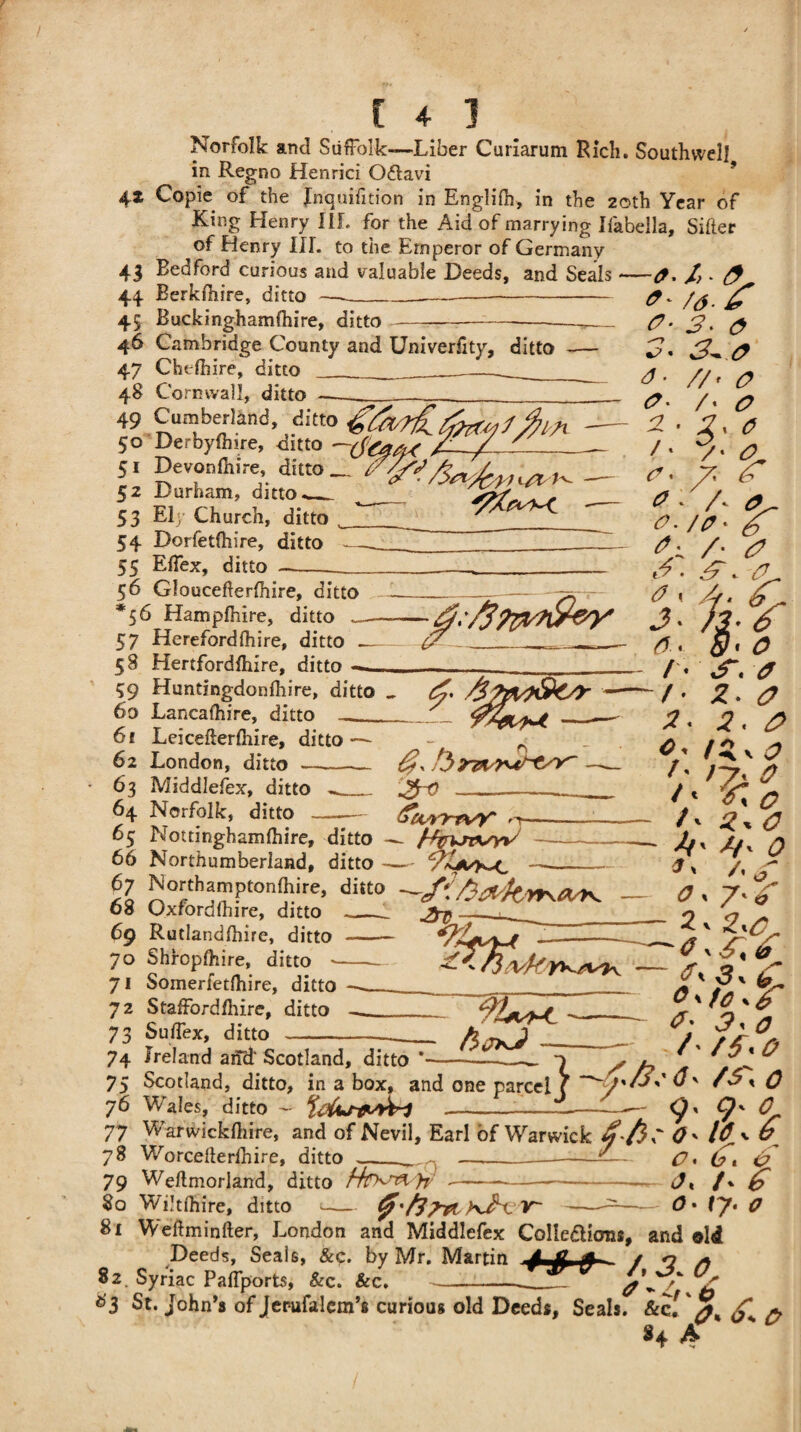 [ 4 ]
Norfolk and Suffolk—Liber Curiarum Rich. Southwell,
in Regno Henrici Octavi
42 Copie of the Inquisition in English, in the 20th Year of
King Henry III. for the Aid of marrying Isabella, Sister
of Henry III. to the Emperor of Germany
43 Bedford curious and valuable Deeds, and Seals — 0. 1. 0
44 Berkshire, ditto — 0. 16. 6
45 Buckinghamshire, ditto — 0. 3. 0
46 Cambridge County and University, ditto — 3. 3. 0
47 Cheshire, ditto 0. 11. 0
48 Cornwall, ditto — 0. 1. 0
49 Cumberland, ditto — 2. 2. 0
50 Derbyshire, ditto — 1. 7. 0
51 Devonshire, ditto — 0. 7. 6
52 Durham, ditto — 0. 1. 0
53 Ely Church, ditto 0. 10. 6
54 Dorsetshire, ditto — 0. 1. 0
55 Essex, ditto — 5. 5. 0
56 Gloucestershire, ditto — 0. 4. 6
*56 Hampshire, ditto — 3. 13. 6
57 Herefordshire, ditto — 0. 8. 0
58 Hertfordshire, ditto — 1. 5. 0
59 Huntingdonshire, ditto — 1. 2. 0
60 Lancashire, ditto — 2. 2. 0
61 Leicestershire, ditto — 0. 12. 0
62 London, ditto — 1. 17. 0
63 Middlesex, ditto — 1. 8. 0
64 Norfolk, ditto — 1. 2. 0
65 Nottinghamshire, ditto — 4. 4. 0
66 Northumberland, ditto — 3. 1. 6
67 Northamptonshire, ditto — 0. 7. 6
68 Oxfordshire, ditto — 2. 2. 0
69 Rutlandshire, ditto — 0. 5. 6
70 Shropshire, ditto — 0. 3. 6
71 Somersetshire, ditto — 0. 10. 6
72 Staffordshire, ditto — 0. 3. 0
73 Sussex, ditto — 1. 15. 0
74 Ireland and Scotland, ditto
75 Scotland, ditto, in a box, and one parcel } 0. 15. 0
76 Wales, ditto — 9. 9. 0
77 Warwickshire, and of Nevil, Earl of Warwick 0. 10. 6
78 Worcestershire, ditto — 0. 6. 6
79 Westmorland, ditto — 0. 1. 6
80 Wiltshire, ditto — 0. 17. 0
81 Westminster, London and Middlesex Collections, and old
Deeds, Seals, &c. by Mr. Martin 1. 3. 0
82 Syriac Passports, &c. &c. 0. 4. 6
83 St. John's of Jerusalem's curious old Deeds, Seals. &c. 0. 6. 0
84 A